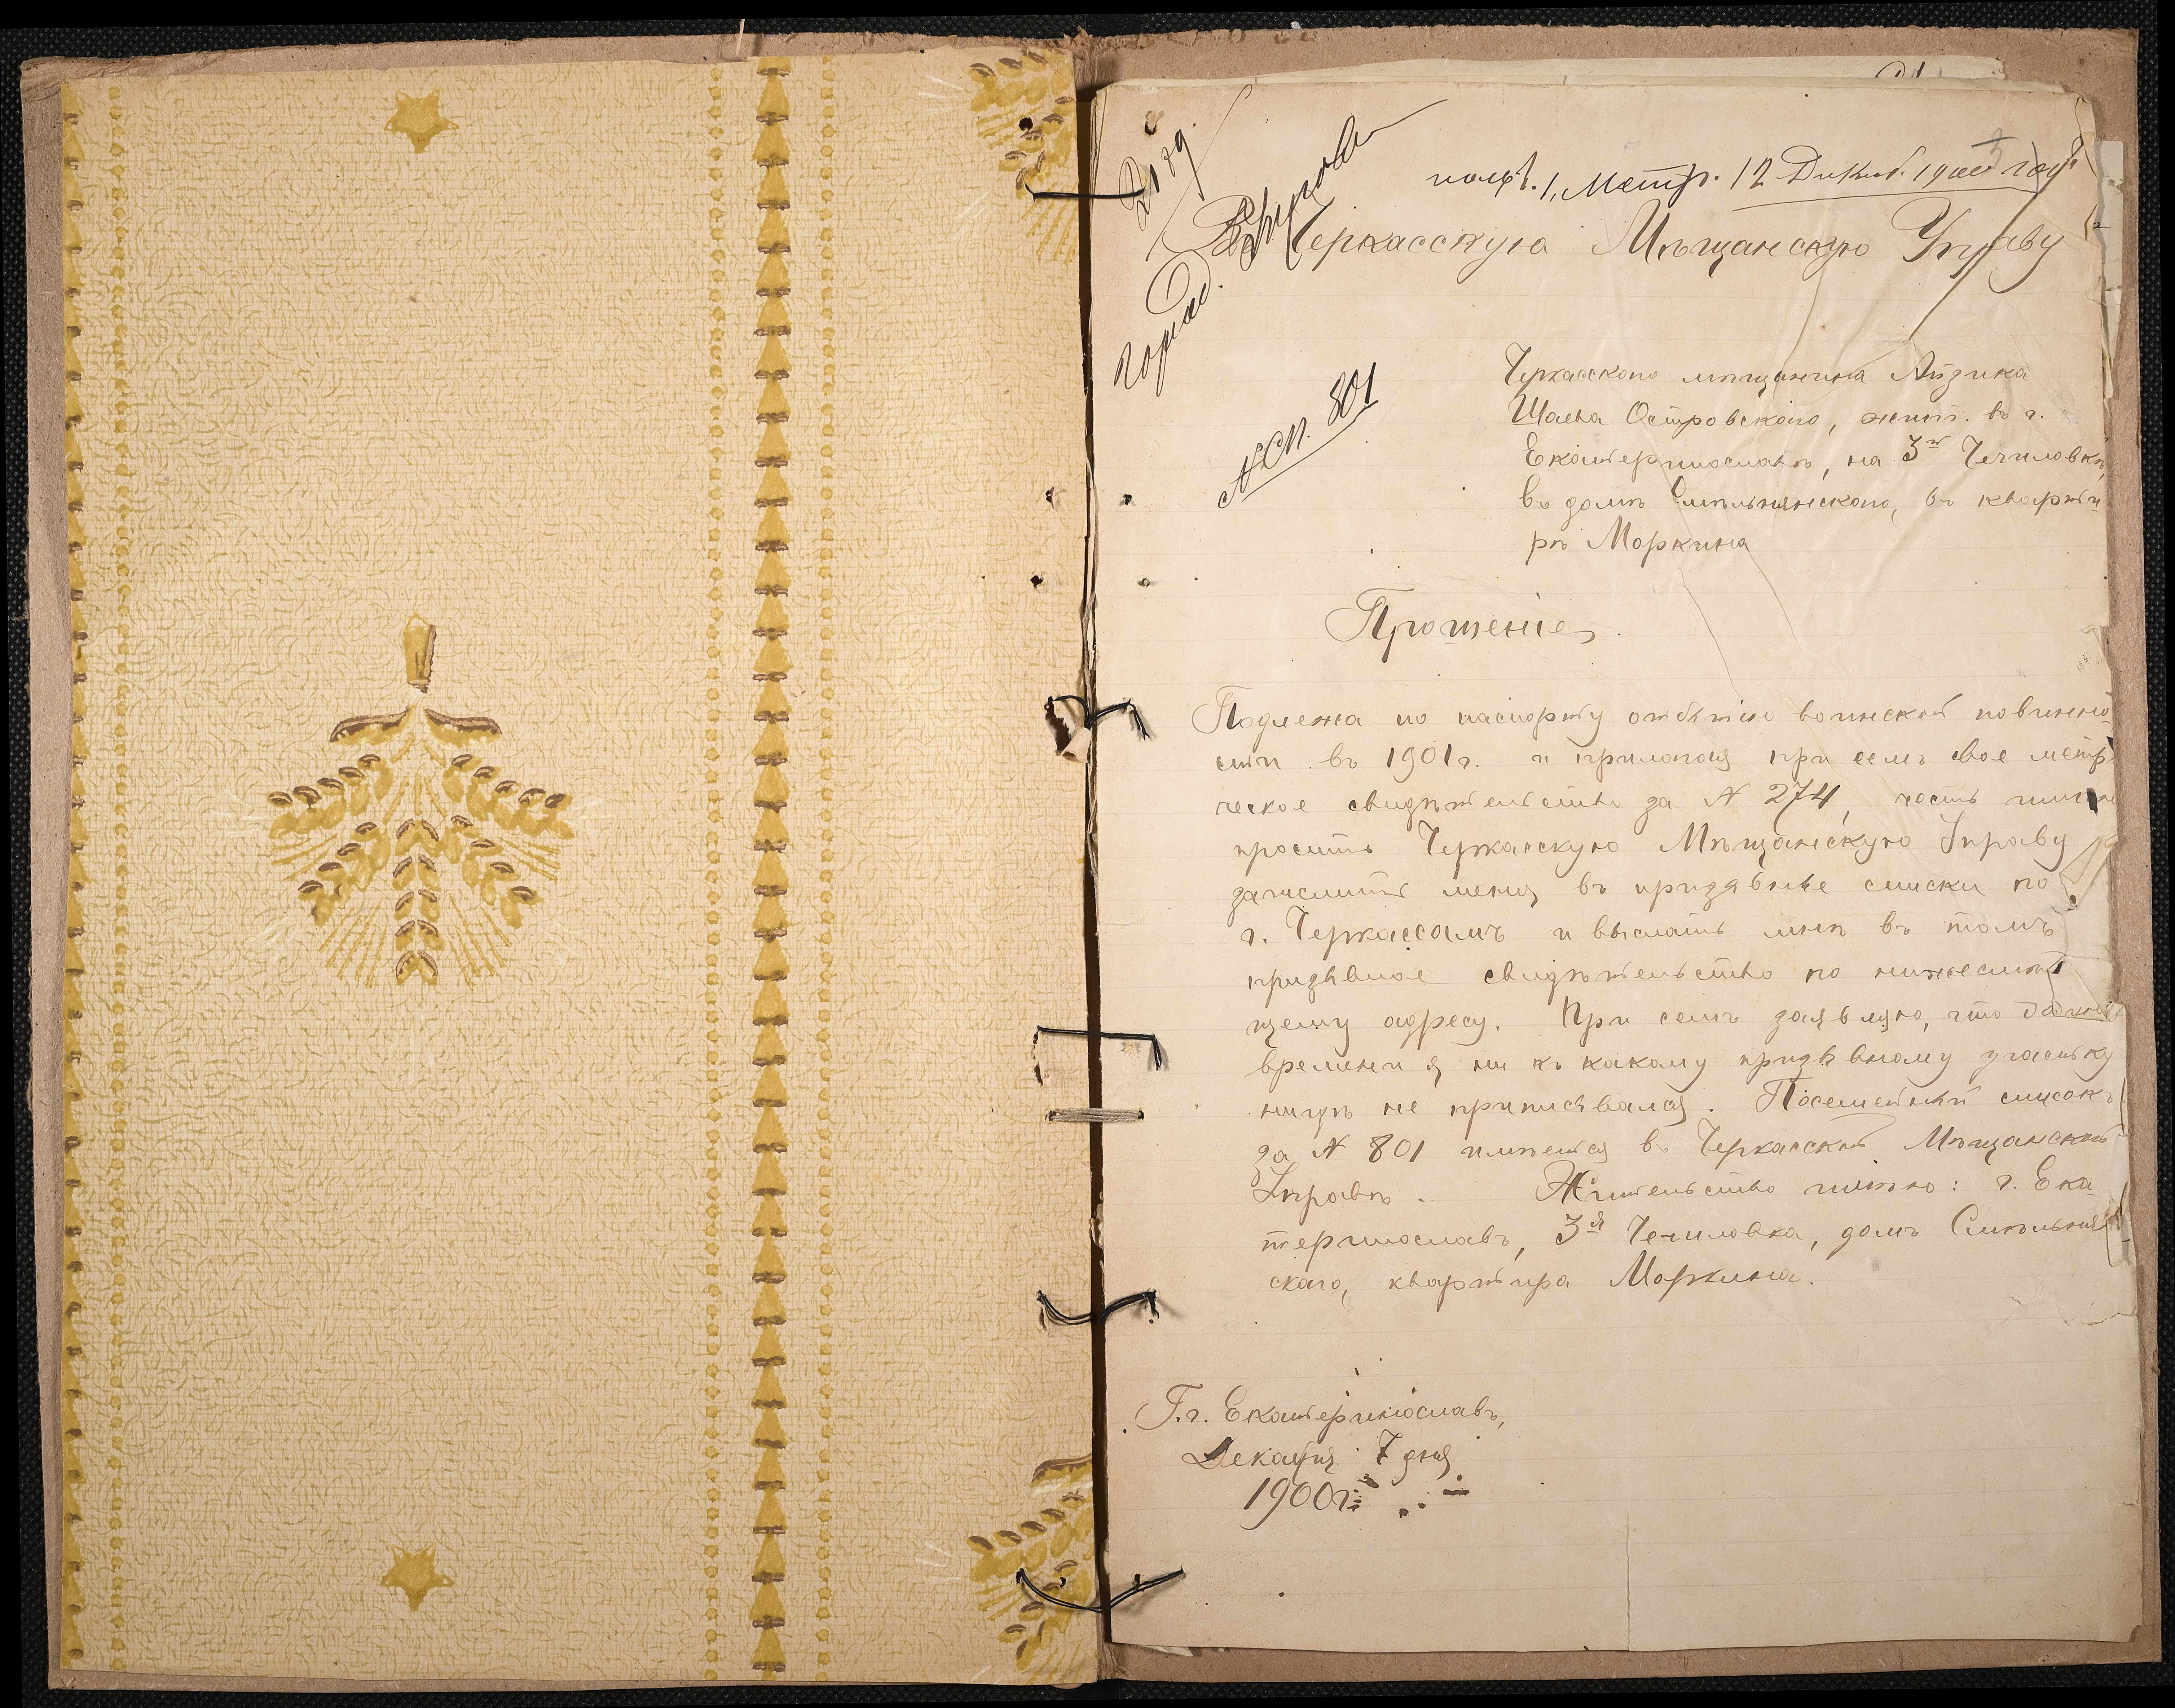 получ. 1, Метр. 12 Декаб. 1900 года
Черкасскую Мѣщанскую Управу
№ сп. 801
Черкасскаго мѣщанина Айзика
Шаева Островскаго, жит. въ г.
Екатеринославѣ, на 3й Чечиловкѣ,
въ домѣ Смѣльнянскаго, въ кварти-
рѣ Моркина
Прошеніе
Подлежа по паспорту отбытію воинской повинно-
сти въ 1901 г. и прилагая при семъ свое метр
ческое свидѣтельство за № 274, честь имѣю
просить Черкасскую Мѣщанскую Управу
зачислить меня въ призывные списки по
г. Черкассамъ и выслать мнѣ въ томъ
призывное свидѣтельство по нижеслѣду
щему адресу. При семъ заявляю, что до сего
времени я ни къ какому призывному участку
нигдѣ не приписывался. Посемейный списокъ
за № 801 имѣется въ Черкасской Мѣщанской
Управѣ. Жительство имѣю: г. Ека-
теринославъ, 3я Чечиловка, домъ Смѣльнян
скаго, квартира Моркина.
Г. г. Екатеринославъ,
Декабря 7 дня
1900 г.